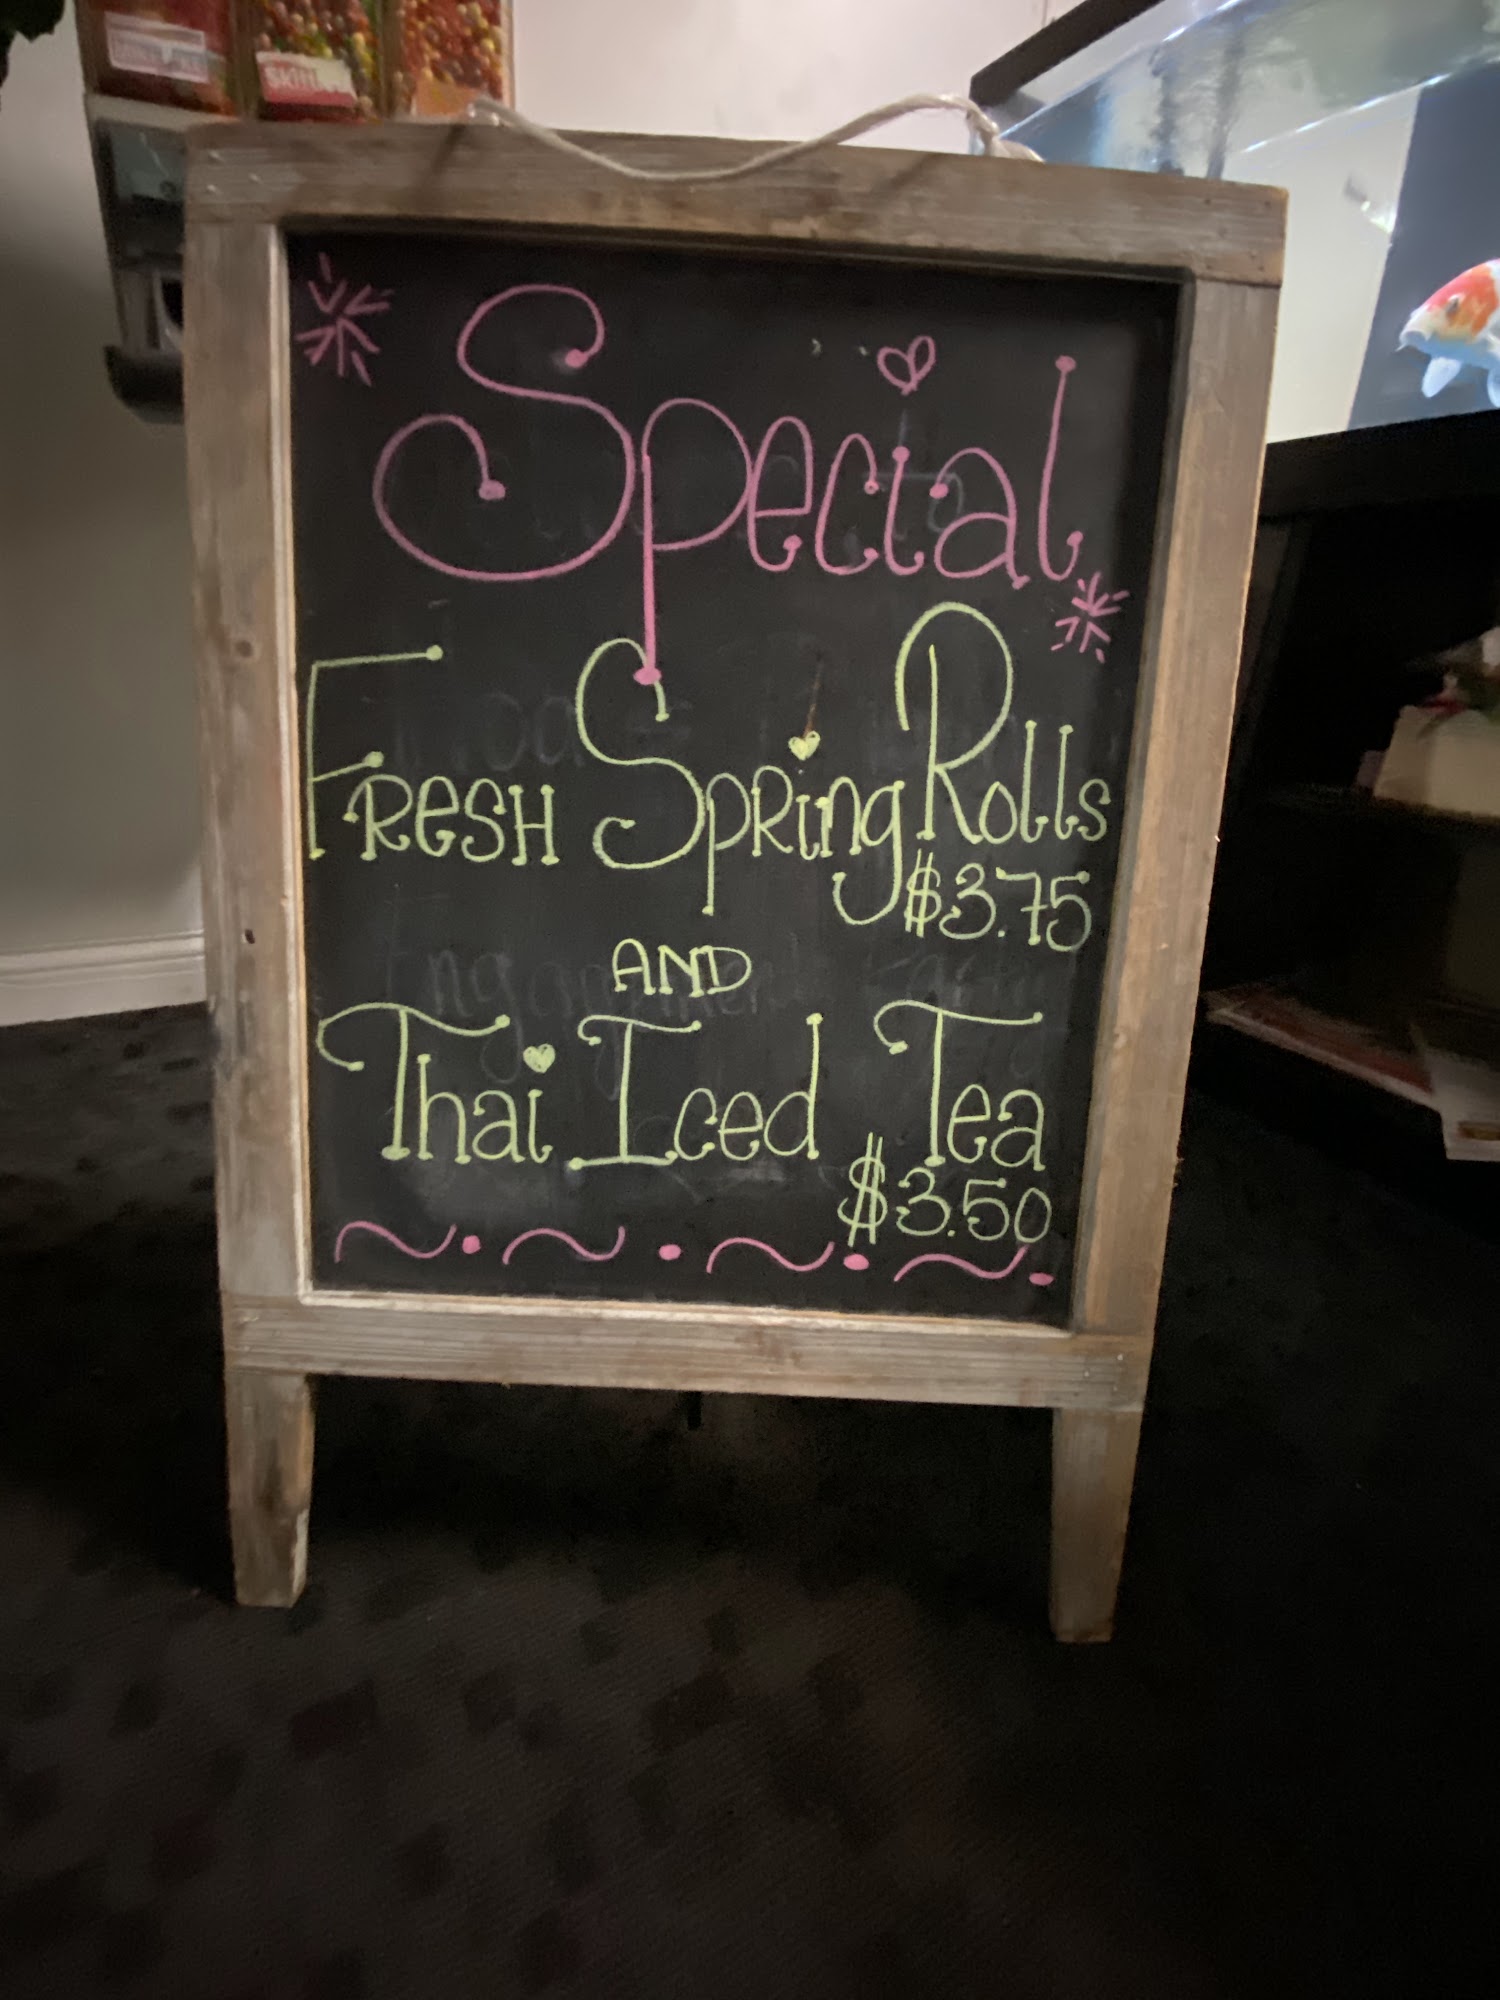 Skittles
Special
FRESH SPRing Rolls
$3.75
AND
Thai Iced Tea
$3.50